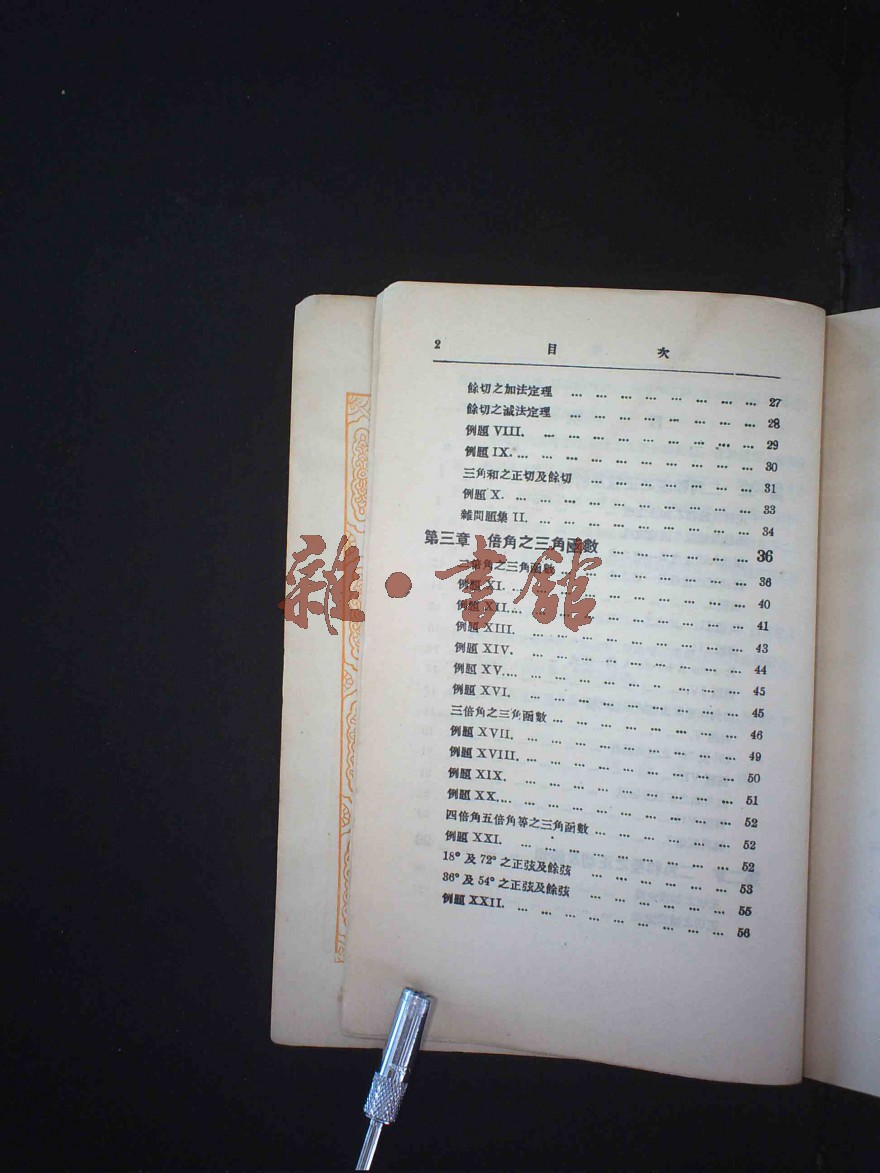 2 目 次
餘切之加法定理 ... ... ... ... ... ... ... ... 27
餘切之減法定理 ... ... ... ... ... ... ... ... 28
例題 VIII. ... ... ... ... ... ... ... ... ... 29
例題 IX. ... ... ... ... ... ... ... ... ... 30
三角和之正切及餘切 ... ... ... ... ... ... ... 31
例題 X. ... ... ... ... ... ... ... ... ... 33
雜問題集 II. ... ... ... ... ... ... ... ... ... 34
第三章 倍角之三角函數 ... ... ... ... ... ... 36
二倍角之三角函數 ... ... ... ... ... ... ... ... 36
例題 XI. ... ... ... ... ... ... ... ... ... 40
例題 XII. ... ... ... ... ... ... ... ... ... 41
例題 XIII. ... ... ... ... ... ... ... ... ... 43
例題 XIV. ... ... ... ... ... ... ... ... ... 44
例題 XV. ... ... ... ... ... ... ... ... ... 45
例題 XVI. ... ... ... ... ... ... ... ... ... 45
三倍角之三角函數 ... ... ... ... ... ... ... ... 46
例題 XVII. ... ... ... ... ... ... ... ... ... 49
例題 XVIII. ... ... ... ... ... ... ... ... ... 50
例題 XIX. ... ... ... ... ... ... ... ... ... 51
例題 XX. ... ... ... ... ... ... ... ... ... 52
四倍角五倍角等之三角函數 ... ... ... ... ... ... 52
例題 XXI. ... ... ... ... ... ... ... ... ... 52
18° 及 72° 之正弦及餘弦 ... ... ... ... ... ... ... 53
36° 及 54° 之正弦及餘弦 ... ... ... ... ... ... ... 55
例題 XXII. ... ... ... ... ... ... ... ... ... 56
雜·書館